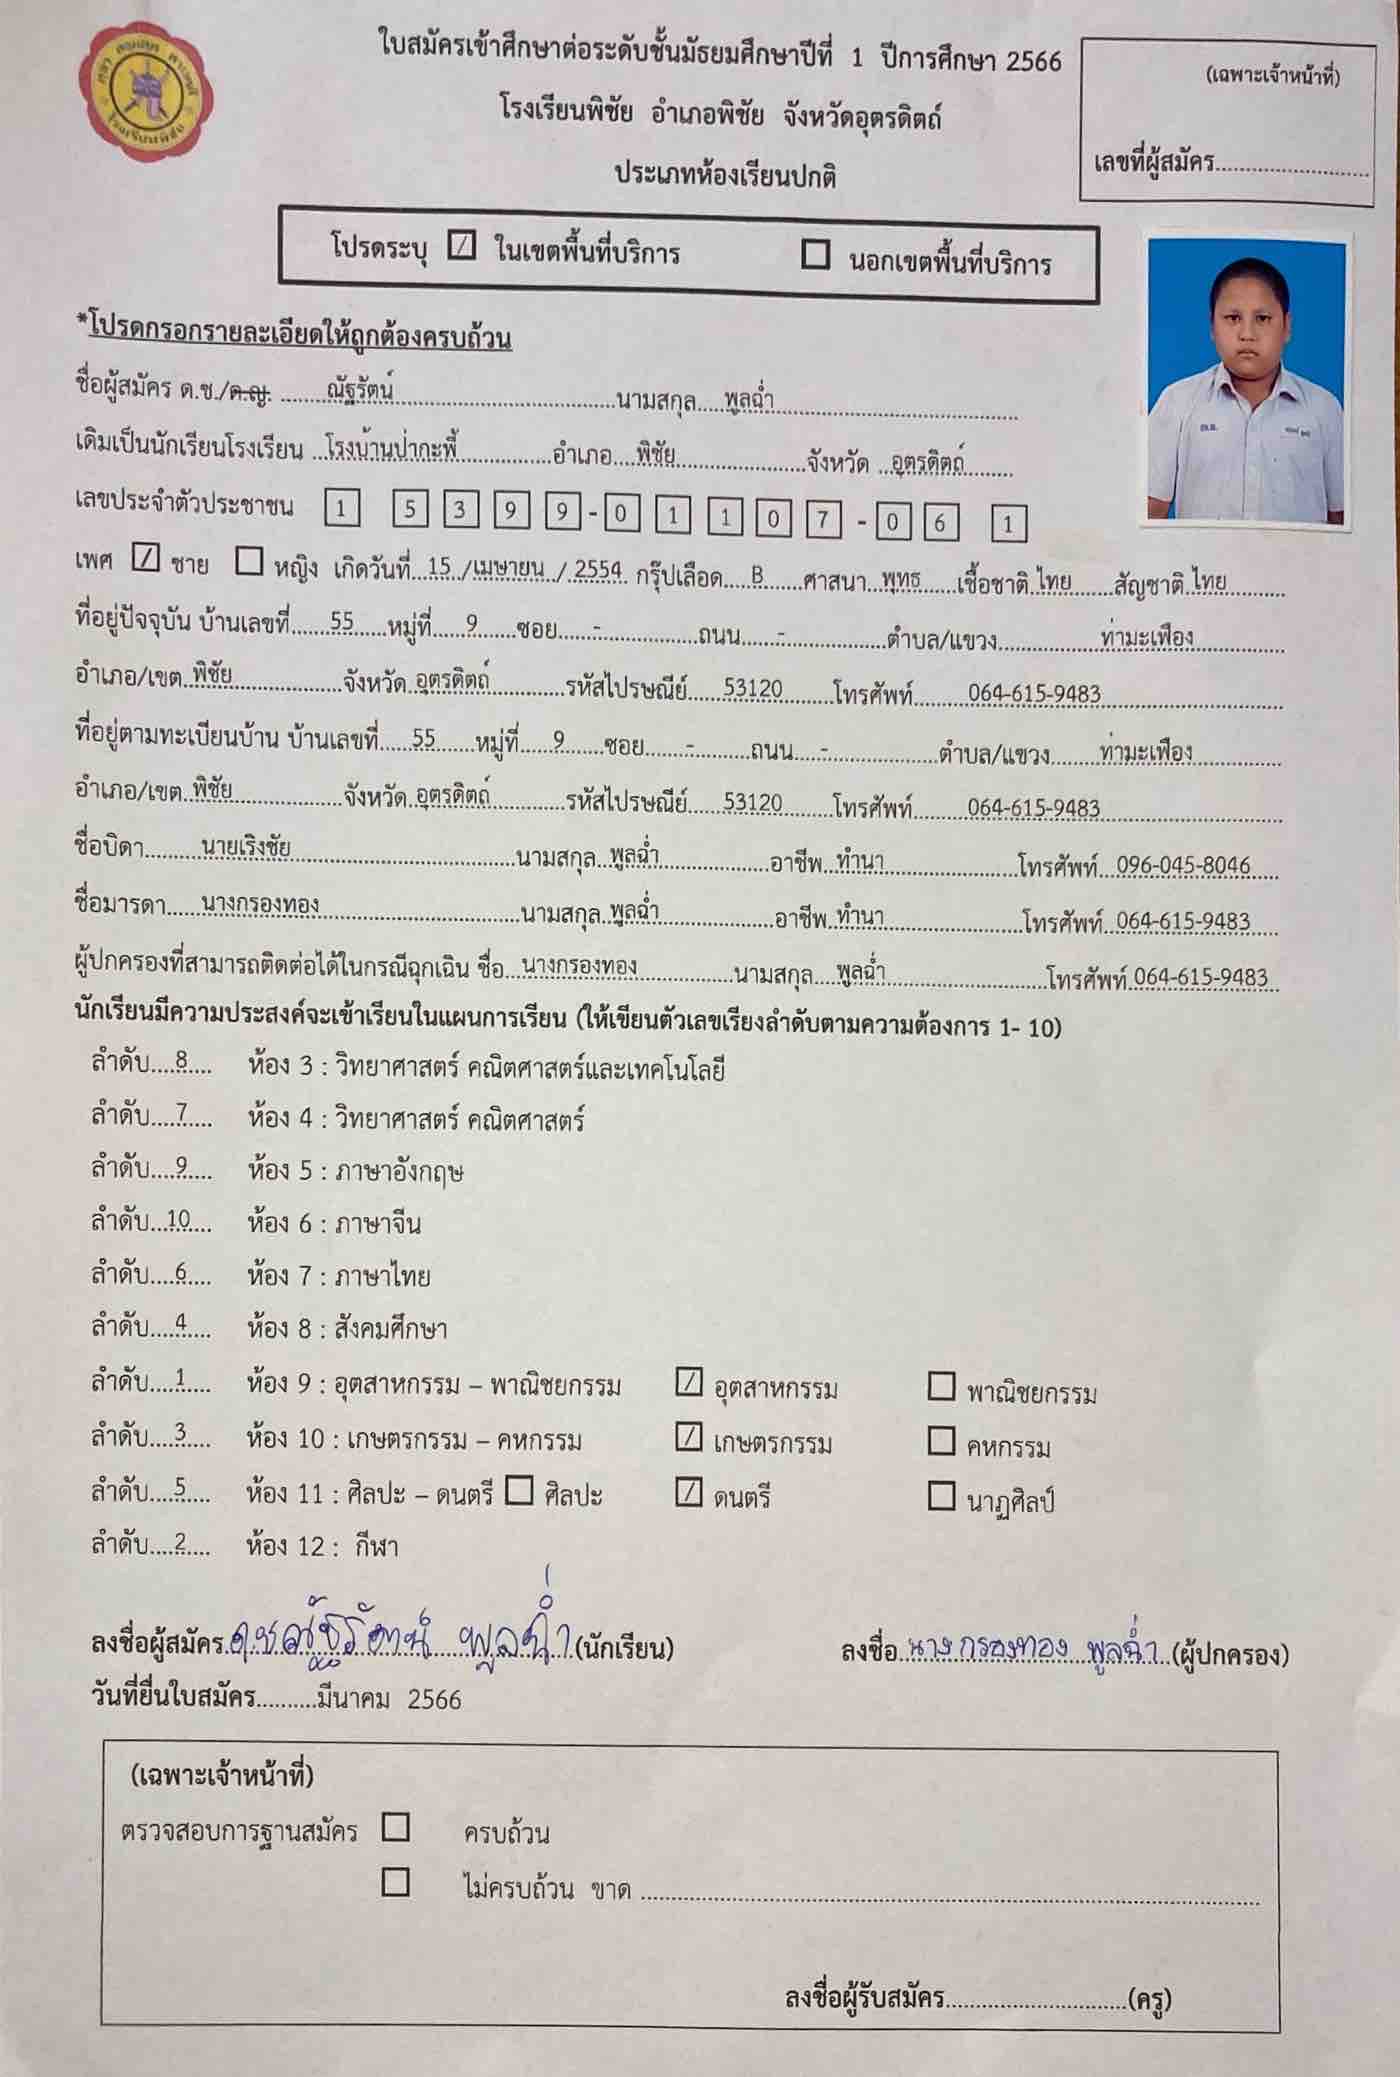 ใบสมัครเข้าศึกษาต่อระดับชั้นมัธยมศึกษาปีที่ 1 ปีการศึกษา 2566
(เฉพาะเจ้าหน้าที่)
โรงเรียนพิชัย อำเภอพิชัย จังหวัดอุตรดิตถ์
เลขที่ผู้สมัคร............................
ประเภทห้องเรียนปกติ
โปรดระบุ ☑ ในเขตพื้นที่บริการ ☐ นอกเขตพื้นที่บริการ
*โปรดกรอกรายละเอียดให้ถูกต้องครบถ้วน
ชื่อผู้สมัคร ด.ช./ด.ญ. ......ณัฐรัตน์..............................นามสกุล....พูลฉ่ำ..............................
เดิมเป็นนักเรียนโรงเรียน ..โรงบ้านป่ากะพี้...............อำเภอ....พิชัย....................จังหวัด ..อุตรดิตถ์........
เลขประจำตัวประชาชน 1 5 3 9 9 - 0 1 1 0 7 - 0 6 1
เพศ ☑ ชาย ☐ หญิง เกิดวันที่..15 /เมษายน / 2554 กรุ๊ปเลือด....B......ศาสนา พุทธ.....เชื้อชาติ.ไทย......สัญชาติ.ไทย..........
ที่อยู่ปัจจุบัน บ้านเลขที่......55.....หมู่ที่.....9......ซอย.....-..............ถนน.....-...............ตำบล/แขวง...............ท่ามะเฟือง.............
อำเภอ/เขต.พิชัย.................จังหวัด.อุตรดิตถ์............รหัสไปรษณีย์.....53120........โทรศัพท์........064-615-9483..........................
ที่อยู่ตามทะเบียนบ้าน บ้านเลขที่.....55......หมู่ที่.....9......ซอย......-........ถนน....-.................ตำบล/แขวง........ท่ามะเฟือง.............
อำเภอ/เขต.พิชัย.................จังหวัด.อุตรดิตถ์............รหัสไปรษณีย์.....53120........โทรศัพท์........064-615-9483..........................
ชื่อบิดา.........นายเริงชัย...................................นามสกุล..พูลฉ่ำ.................อาชีพ..ทำนา....................โทรศัพท์...096-045-8046....
ชื่อมารดา......นางกรองทอง...............................นามสกุล.พูลฉ่ำ..................อาชีพ..ทำนา.....................โทรศัพท์..064-615-9483....
ผู้ปกครองที่สามารถติดต่อได้ในกรณีฉุกเฉิน ชื่อ...นางกรองทอง...............นามสกุล....พูลฉ่ำ.........................โทรศัพท์.064-615-9483..
นักเรียนมีความประสงค์จะเข้าเรียนในแผนการเรียน (ให้เขียนตัวเลขเรียงลำดับตามความต้องการ 1- 10)
ลำดับ....8..... ห้อง 3 : วิทยาศาสตร์ คณิตศาสตร์และเทคโนโลยี
ลำดับ....7..... ห้อง 4 : วิทยาศาสตร์ คณิตศาสตร์
ลำดับ....9..... ห้อง 5 : ภาษาอังกฤษ
ลำดับ...10.... ห้อง 6 : ภาษาจีน
ลำดับ....6..... ห้อง 7 : ภาษาไทย
ลำดับ....4..... ห้อง 8 : สังคมศึกษา
ลำดับ....1..... ห้อง 9 : อุตสาหกรรม – พาณิชยกรรม ☑ อุตสาหกรรม ☐ พาณิชยกรรม
ลำดับ....3..... ห้อง 10 : เกษตรกรรม – คหกรรม ☑ เกษตรกรรม ☐ คหกรรม
ลำดับ....5..... ห้อง 11 : ศิลปะ – ดนตรี ☐ ศิลปะ ☑ ดนตรี ☐ นาฏศิลป์
ลำดับ....2..... ห้อง 12 : กีฬา
ลงชื่อผู้สมัคร.ด.ช.ณัฐรัตน์ พูลฉ่ำ.(นักเรียน) ลงชื่อ..นางกรองทอง พูลฉ่ำ..(ผู้ปกครอง)
วันที่ยื่นใบสมัคร..........มีนาคม 2566
(เฉพาะเจ้าหน้าที่)
ตรวจสอบการฐานสมัคร ☐ ครบถ้วน
☐ ไม่ครบถ้วน ขาด ....................................................................................
ลงชื่อผู้รับสมัคร..............................(ครู)